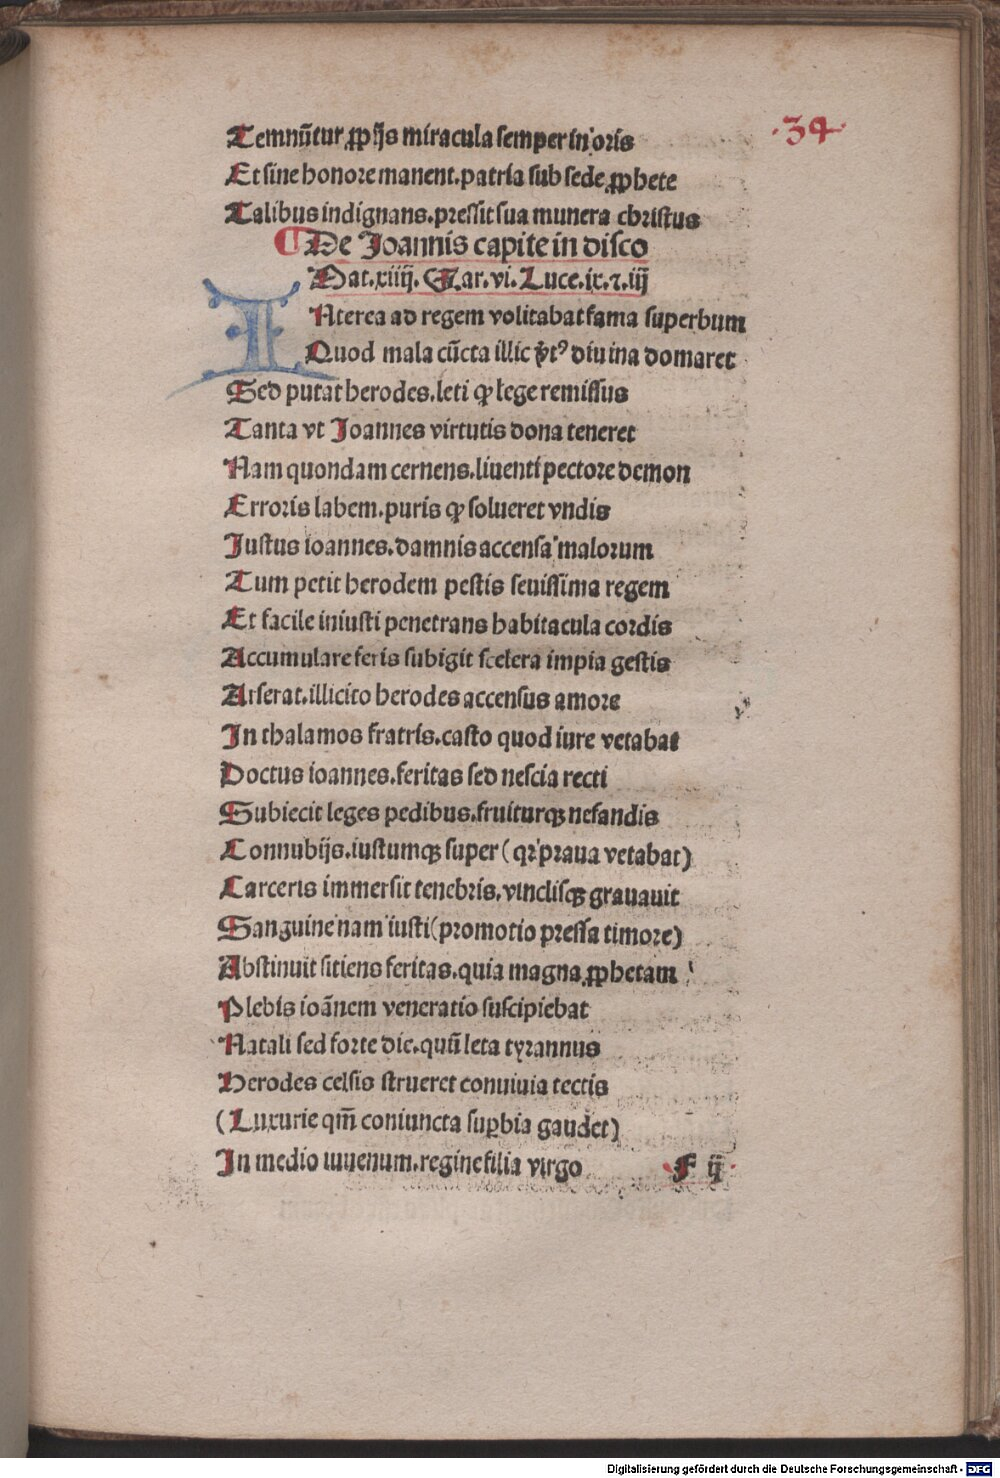 ·34·
Temnũtur ꝓprijs miracula semper in oris
Et sine honore manent.patria sub sede ꝓphete
Talibus indignans.pressit sua munera christus
¶ De Joannis capite in disco
Mat.xiiij. Mar.vi.Luce.ix.⁊.iij
INterea ad regem volitabat fama superbum
Quod mala cũcta illic virtꝰ diuina domaret
Sed putat herodes.leti ꝙ lege remissus
Tanta vt Joannes virtutis dona teneret
Nam quondam cernens.liuenti pectore demon
Erroris labem.puris ꝙ solueret vndis
Justus ioannes.damnis accensa malorum
Tum petit herodem pestis seuissima regem
Et facile iniusti penetrans habitacula cordis
Accumulare feris subigit scelera impia gestis
Arserat.illicito herodes accensus amore
In thalamos fratris.casto quod iure vetabat
Doctus ioannes.feritas sed nescia recti
Subiecit leges pedibus.fruiturqꝫ nefandis
Connubijs.iustumqꝫ super (qr praua vetabat)
Carceris immersit tenebris.vinclisqꝫ grauauit
Sanguine nam iusti(promotio pressa timore)
Abstinuit sitiens feritas.quia magna ꝓphetam
Plebis ioãnem veneratio suscipiebat
Natali sed forte die.quũ leta tyrannus
Herodes celsis strueret conuiuia tectis
(Luxurie qm̃ coniuncta suꝑbia gaudet)
In medio iuuenum.regine filia virgo
F ij
Digitalisierung gefördert durch die Deutsche Forschungsgemeinschaft - DFG